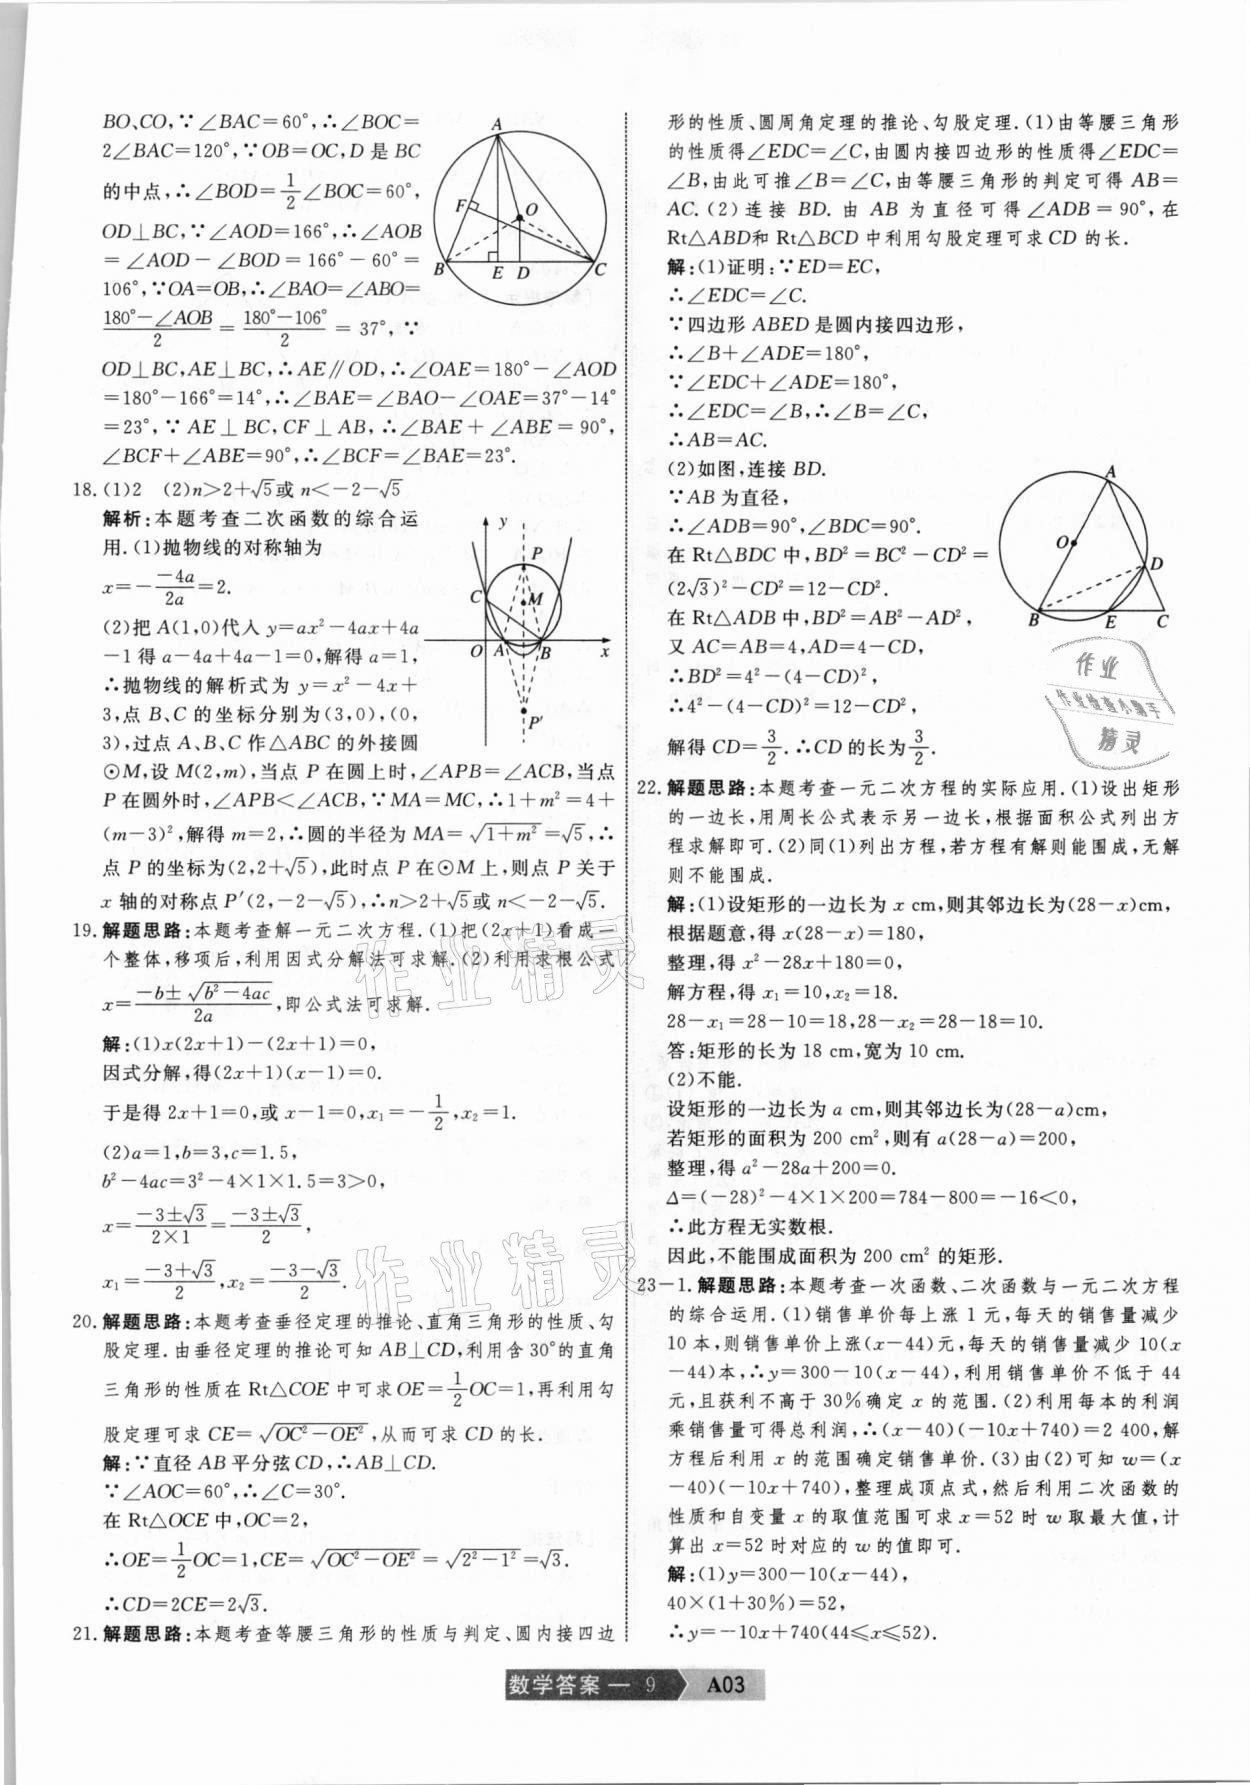 BO、CO,∵∠BAC=60°,∴∠BOC=
2∠BAC=120°,∵OB=OC,D 是 BC
的中点,∴∠BOD=1/2∠BOC=60°,
OD⊥BC,∵∠AOD=166°,∴∠AOB
=∠AOD-∠BOD=166°-60°=
106°,∵OA=OB,∴∠BAO=∠ABO=
(180°-∠AOB)/2=(180°-106°)/2=37°,∵
OD⊥BC,AE⊥BC,∴AE∥OD,∴∠OAE=180°-∠AOD
=180°-166°=14°,∴∠BAE=∠BAO-∠OAE=37°-14°
=23°,∵AE⊥BC,CF⊥AB,∴∠BAE+∠ABE=90°,
∠BCF+∠ABE=90°,∴∠BCF=∠BAE=23°.
A
F
O
B
E
D
C
18.(1)2 (2)n>2+√5或 n<-2-√5
解析:本题考查二次函数的综合运
用.(1)抛物线的对称轴为
x=-(-4a)/(2a)=2.
(2)把 A(1,0)代入 y=ax²-4ax+4a
-1得 a-4a+4a-1=0,解得 a=1,
∴抛物线的解析式为 y=x²-4x+
3,点 B、C 的坐标分别为(3,0),(0,
3),过点 A、B、C 作△ABC 的外接圆
⊙M,设 M(2,m),当点 P 在圆上时,∠APB=∠ACB,当点
P 在圆外时,∠APB<∠ACB,∵MA=MC,∴1+m²=4+
(m-3)²,解得 m=2,∴圆的半径为 MA=√(1+m²)=√5,∴
点 P 的坐标为(2,2+√5),此时点 P 在⊙M 上,则点 P 关于
x 轴的对称点 P′(2,-2-√5),∴n>2+√5或 n<-2-√5.
y
P
C
M
O
A
B
x
P′
19.解题思路:本题考查解一元二次方程.(1)把(2x+1)看成一
个整体,移项后,利用因式分解法可求解.(2)利用求根公式
x=(-b±√(b²-4ac))/(2a),即公式法可求解.
解:(1)x(2x+1)-(2x+1)=0,
因式分解,得(2x+1)(x-1)=0.
于是得 2x+1=0,或 x-1=0,x₁=-1/2,x₂=1.
(2)a=1,b=3,c=1.5,
b²-4ac=3²-4×1×1.5=3>0,
x=(-3±√3)/(2×1)=(-3±√3)/2,
x₁=(-3+√3)/2,x₂=(-3-√3)/2.
20.解题思路:本题考查垂径定理的推论、直角三角形的性质、勾
股定理.由垂径定理的推论可知 AB⊥CD,利用含30°的直角
三角形的性质在 Rt△COE 中可求 OE=1/2OC=1,再利用勾
股定理可求 CE=√(OC²-OE²),从而可求 CD 的长.
解:∵直径 AB 平分弦 CD,∴AB⊥CD.
∵∠AOC=60°,∴∠C=30°.
在 Rt△OCE 中,OC=2,
∴OE=1/2OC=1,CE=√(OC²-OE²)=√(2²-1²)=√3.
∴CD=2CE=2√3.
21.解题思路:本题考查等腰三角形的性质与判定、圆内接四边
形的性质、圆周角定理的推论、勾股定理.(1)由等腰三角形
的性质得∠EDC=∠C,由圆内接四边形的性质得∠EDC=
∠B,由此可推∠B=∠C,由等腰三角形的判定可得 AB=
AC.(2)连接 BD.由 AB 为直径可得∠ADB=90°,在
Rt△ABD和 Rt△BCD 中利用勾股定理可求 CD 的长.
解:(1)证明:∵ED=EC,
∴∠EDC=∠C.
∵四边形 ABED 是圆内接四边形,
∴∠B+∠ADE=180°,
∵∠EDC+∠ADE=180°,
∴∠EDC=∠B,∴∠B=∠C,
∴AB=AC.
(2)如图,连接 BD.
∵AB 为直径,
∴∠ADB=90°,∠BDC=90°.
在 Rt△BDC 中,BD²=BC²-CD²=
(2√3)²-CD²=12-CD².
在 Rt△ADB 中,BD²=AB²-AD²,
又 AC=AB=4,AD=4-CD,
∴BD²=4²-(4-CD)²,
∴4²-(4-CD)²=12-CD²,
解得 CD=3/2.∴CD 的长为3/2.
A
O
D
B
E
C
作业
作业检查小帮手
精灵
22.解题思路:本题考查一元二次方程的实际应用.(1)设出矩形
的一边长,用周长公式表示另一边长,根据面积公式列出方
程求解即可.(2)同(1)列出方程,若方程有解则能围成,无解
则不能围成.
解:(1)设矩形的一边长为 x cm,则其邻边长为(28-x)cm,
根据题意,得 x(28-x)=180,
整理,得 x²-28x+180=0,
解方程,得 x₁=10,x₂=18.
28-x₁=28-10=18,28-x₂=28-18=10.
答:矩形的长为 18 cm,宽为 10 cm.
(2)不能.
设矩形的一边长为 a cm,则其邻边长为(28-a)cm,
若矩形的面积为 200 cm²,则有 a(28-a)=200,
整理,得 a²-28a+200=0.
Δ=(-28)²-4×1×200=784-800=-16<0,
∴此方程无实数根.
因此,不能围成面积为 200 cm² 的矩形.
23-1.解题思路:本题考查一次函数、二次函数与一元二次方程
的综合运用.(1)销售单价每上涨 1 元,每天的销售量减少
10 本,则销售单价上涨(x-44)元,每天的销售量减少 10(x
-44)本,∴y=300-10(x-44),利用销售单价不低于 44
元,且获利不高于 30%确定 x 的范围.(2)利用每本的利润
乘销售量可得总利润,∴(x-40)(-10x+740)=2 400,解
方程后利用 x 的范围确定销售单价.(3)由(2)可知 w=(x
-40)(-10x+740),整理成顶点式,然后利用二次函数的
性质和自变量 x 的取值范围可求 x=52 时 w 取最大值,计
算出 x=52 时对应的 w 的值即可.
解:(1)y=300-10(x-44),
40×(1+30%)=52,
∴y=-10x+740(44≤x≤52).
作业精灵
作业精灵
数学答案 — 9 A03